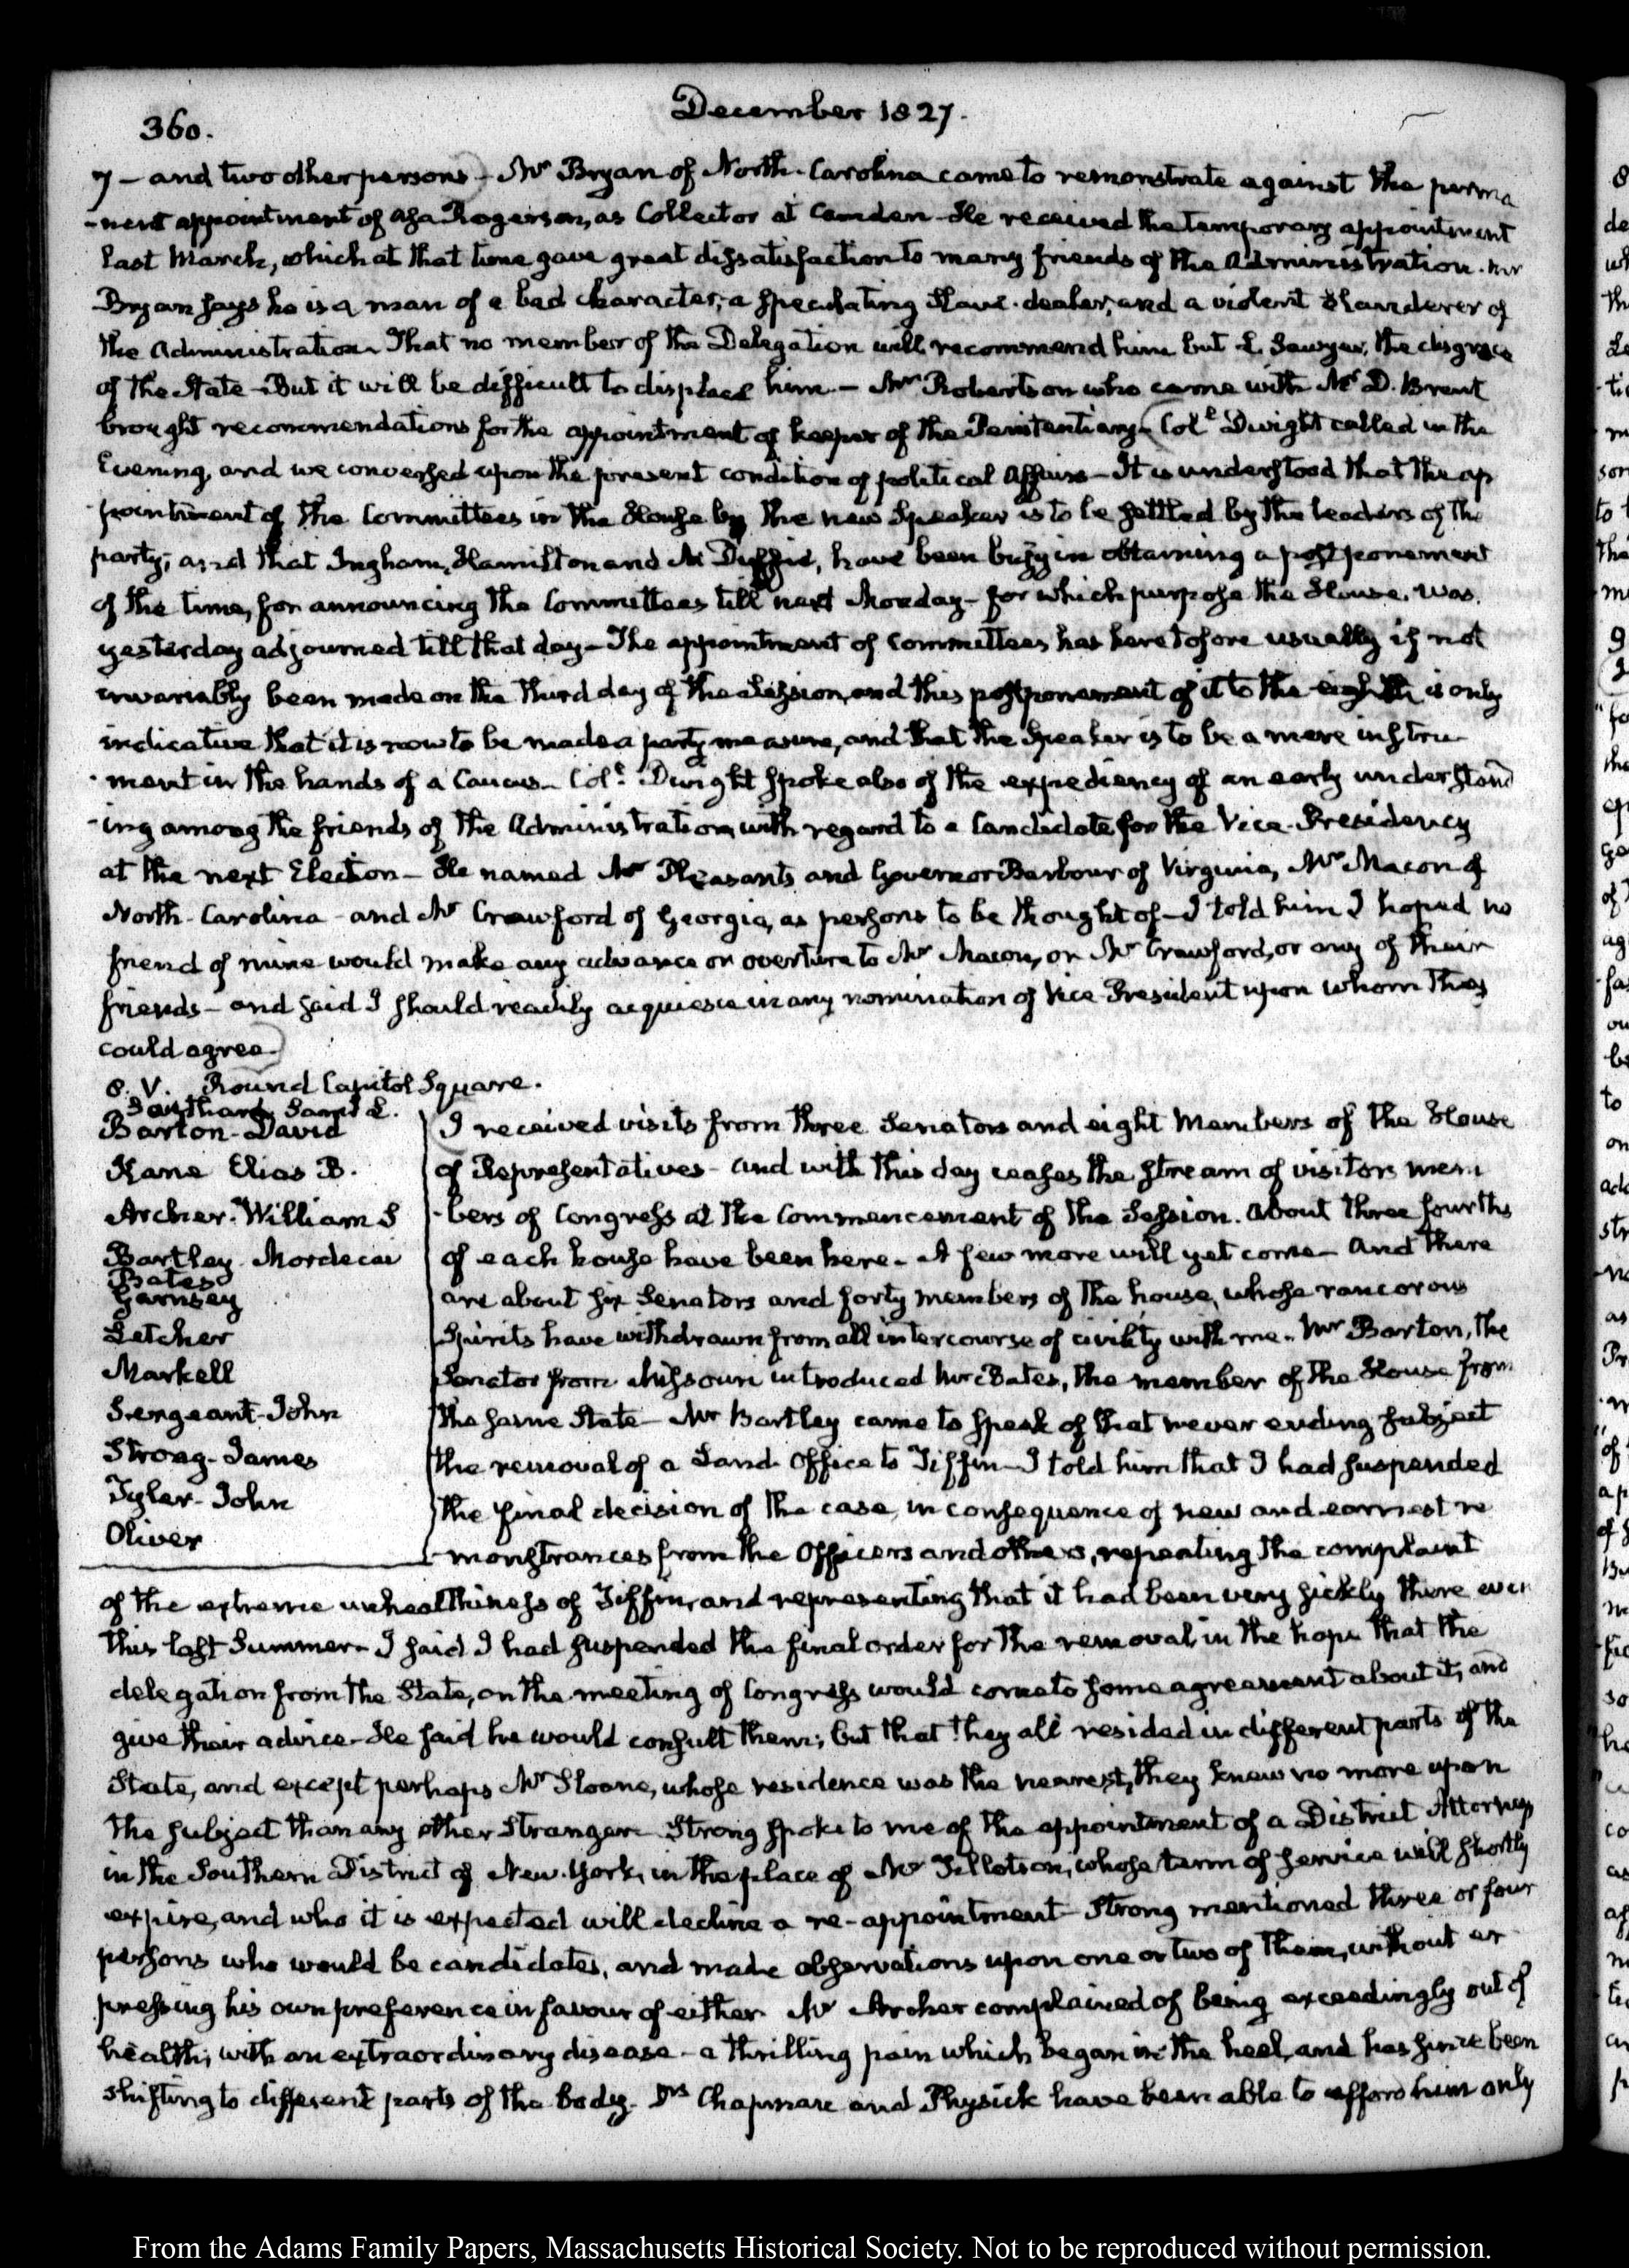 360.
December 1827.
7 – and two other persons – Mr Bryan of North-Carolina came to remonstrate against the perma
-nent appointment of Asa Rogerson, as Collector at Camden – He received the temporary appointment
last March, which at that time gave great dissatisfaction to many friends of the Administration. Mr
Bryan says he is a man of a bad character; a speculating Slave-dealer, and a violent slanderer of
the Administration. That no member of the Delegation will recommend him but L. Sawyer, the disgrace
of the State – But it will be difficult to displace him – Mr Robertson who came with Mr D. Brent
brought recommendations for the appointment of keeper of the Penitentiary – Coll Dwight called in the
Evening, and we conversed upon the present condition of political Affairs – It is understood that the ap
-pointment of the Committees in the House by the new Speaker is to be settled by the leaders of the
party; and that Ingham, Hamilton and McDuffie, have been busy in obtaining a postponement
of the time, for announcing the Committees till next Monday – for which purpose the House was
yesterday adjourned till that day – The appointment of Committees has heretofore usually if not
invariably been made on the third day of the Session, and this postponement of it to the eighth is only
indicative that it is now to be made a party measure, and that the Speaker is to be a mere instru
-ment in the hands of a Caucus – Coll Dwight spoke also of the expediency of an early understand
-ing among the friends of the Administration, with regard to a Candidate for the Vice-Presidency
at the next Election – He named Mr Pleasants and Governor Barbour of Virginia, Mr Macon of
North-Carolina – and Mr Crawford of Georgia, as persons to be thought of – I told him I hoped no
friend of mine would make any advance or overture to Mr Macon, or Mr Crawford, or any of their
friends – and said I should readily acquiesce in any nomination of Vice-President upon whom they
could agree –
8. V. Round Capitol Square.
Southard Saml L.
Barton - David
Kane Elias B.
Archer. William S
Bartley Mordecai
Bates
Garnsey
Letcher
Markell
Sergeant - John
Strong - James
Tyler - John
Oliver
I received visits from three Senators and eight Members of the House
of Representatives – and with this day ceases the stream of visitors mem
-bers of Congress at the Commencement of the Session. About three fourths
of each house have been here – A few more will yet come – And there
are about six Senators and forty members of the house, whose rancorous
Spirits have withdrawn from all intercourse of civility with me. Mr Barton, the
Senator from Missouri introduced Mr Bates, the member of the House from
the same State – Mr Bartley came to speak of that never ending subject
the removal of a Land Office to Tiffin – I told him that I had suspended
the final decision of the case, in consequence of new and earnest re
-monstrances from the Officers and others, repeating the complaint
of the extreme unhealthiness of Tiffin, and representing that it had been very sickly there even
this last Summer – I said I had suspended the final order for the removal, in the hope that the
delegation from the State, on the meeting of Congress would come to some agreement about it, and
give their advice – He said he would consult them; but that they all resided in different parts of the
State, and except perhaps Mr Sloane, whose residence was the nearest, they knew no more upon
the subject than any other Stranger. Strong spoke to me of the appointment of a District Attorney
in the Southern District of New-York, in the place of Mr Tillotson, whose term of service will shortly
expire, and who it is expected will decline a re-appointment – Strong mentioned three or four
persons who would be candidates, and made observations upon one or two of them, without ex
-pressing his own preference in favour of either. Mr Archer complained of being exceedingly out of
health; with an extraordinary disease – a thrilling pain which began in the heel, and has since been
shifting to different parts of the body – Drs Chapman and Physick have been able to afford him only
From the Adams Family Papers, Massachusetts Historical Society. Not to be reproduced without permission.